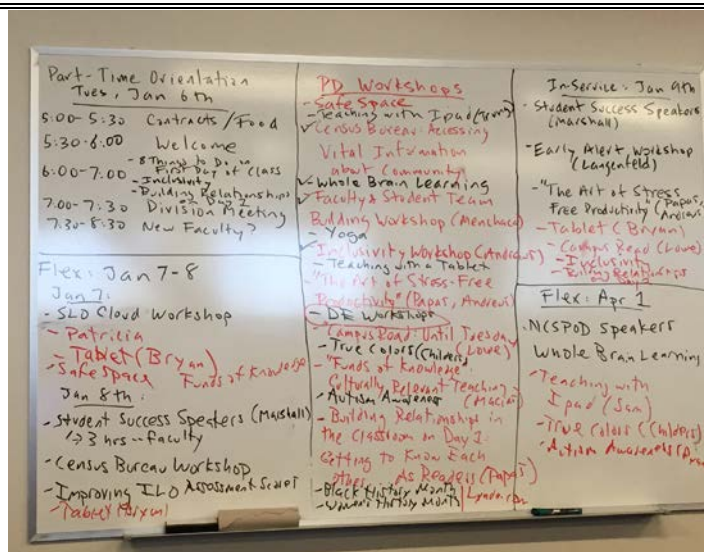 Part-Time Orientation
Tues, Jan 6th
5:00-5:30 Contracts/Food
5:30-6:00 Welcome
- 8 Things to Do on
First Day of Class
6:00-7:00 - Inclusivity
- Building Relationships
on Day 1
7:00-7:30 Division Meeting
7:30-8:30 New Faculty?
Flex: Jan 7-8
Jan 7:
- SLO Cloud Workshop
- Patricia
- Tablet (Bryan)
- Safe Space Funds of Knowledge
Jan 8th:
- Student Success Speakers (Marshall)
↳ 3 hrs -- faculty
- Census Bureau Workshop
- Improving ILO Assessment Scores
- Tablet (Bryan)
PD Workshops
- Safe Space
- Teaching with Ipad
✓ Census Bureau: Accessing
Vital Information
about Community
✓ Whole Brain Learning
✓ Faculty & Student Team
Building Workshop (Menchaca)
- Yoga
✓ Inclusivity Workshop (Andrews)
- Teaching with a Tablet
- "The Art of Stress-Free
Productivity" (Papas, Andrews)
- DE Workshops
- "Campus Read: Until Tuesday"
(Lowe)
- True Colors (Childers)
- "Funds of Knowledge"
Culturally Relevant Teaching
(Macias)
- Autism Awareness
- Building Relationships in
the Classroom on Day 1:
Getting to Know Each
other As Readers (Papas)
- Black History Month
- Women's History Month
In-Service: Jan 9th
- Student Success Speakers
(Marshall)
- Early Alert Workshop
(Langenfeld)
- "The Art of Stress
Free Productivity" (Papas,
Andrews)
- Tablet (Bryan)
- Campus Read (Lowe)
- Inclusivity
- Building Relationships
on Day 1
Flex: Apr 1
- NCSPOD Speakers
Whole Brain Learning
- Teaching with
Ipad (Sam)
- True Colors (Childers)
- Autism Awareness